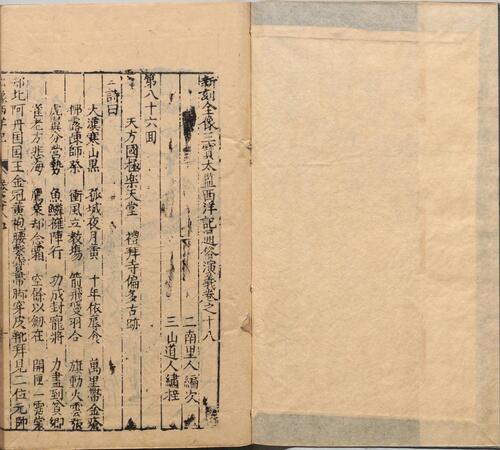 新刻全像三寶太監西洋記通俗演義卷之十八
二南里人編次
三山道人繡梓
第八十六回
天方國極樂天堂 禮拜寺偏多古跡
詩曰
大漠寒山黒 孤城夜月黄 十年依蓐食 萬里帶金瘡
拂露陳師祭 衝風立教場 箭飛瓊羽合 旗動火雲張
虎翼分營勢 魚鱗擁陣行 功成封寵將 力盡到貧鄉
雀老方悲海 鷹衰却念霜 空餘以劍在 開匣一霑裳
却比阿丹国国王金冠黄袍腰繫寶帶脚穿皮靴拜見二位元帥